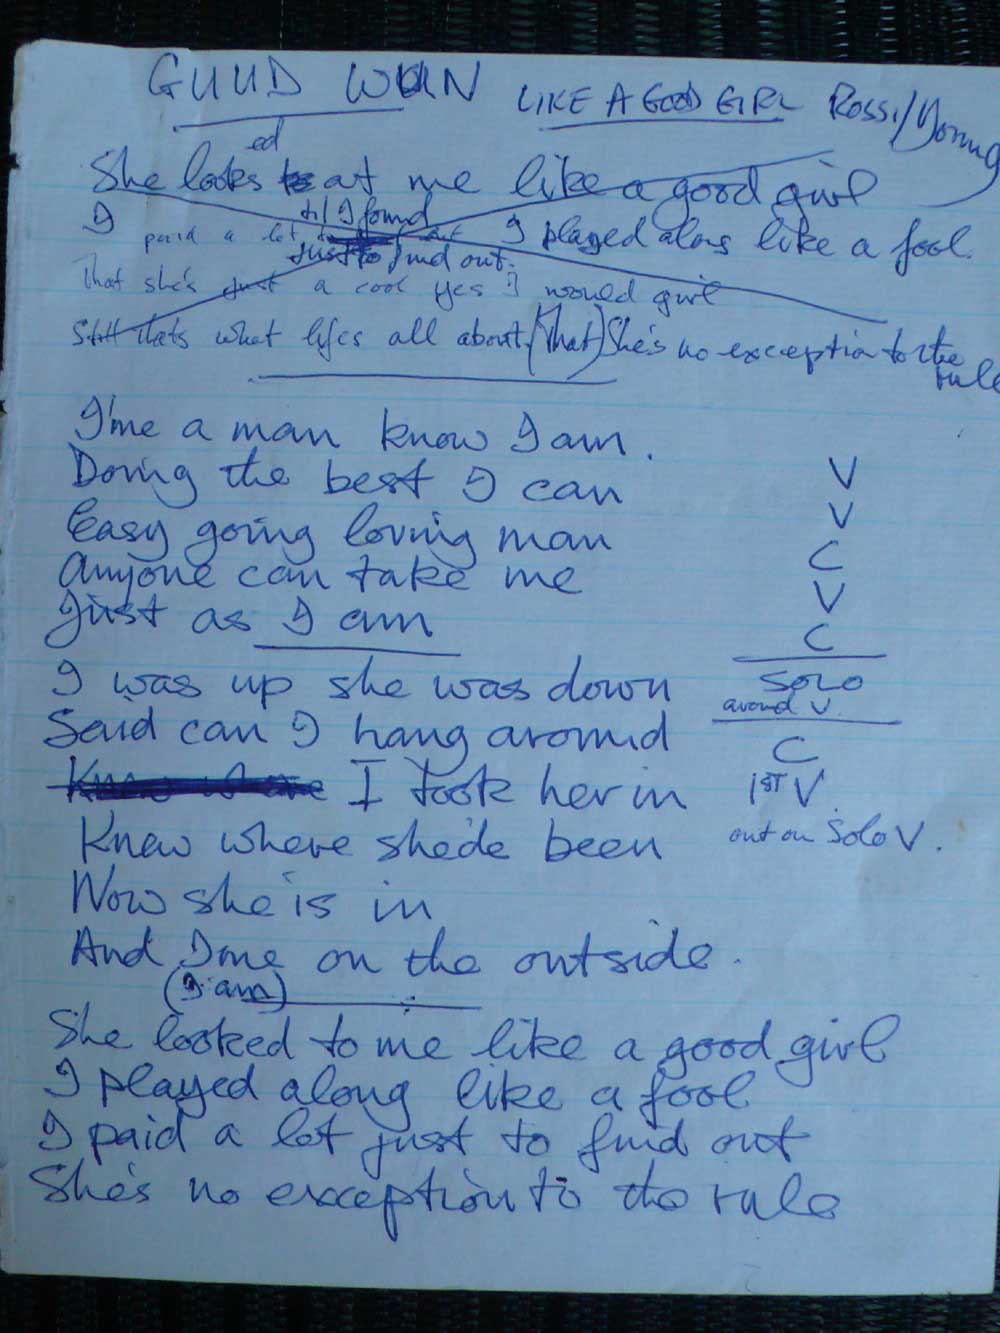 GUUD WUN LIKE A GOOD GIRL ROSSI/Young
ed
She looks at me like a good girl
til I found
I paid a lot I played along like a fool
just to find out.
That she's just a cool yes I would girl
Still thats what lifes all about. (That) She's no exception to the rule
I'me a man know I am.
Doing the best I can V
Easy going loving man V
Anyone can take me C
Just as I am V
C
I was up she was down SOLO
around V.
Said can I hang around C
I took her in 1ST V.
Knew where shede been out on Solo V.
Now she is in
And I'me on the outside.
(I am)
She looked to me like a good girl
I played along like a fool
I paid a lot just to find out
She's no exception to the rule